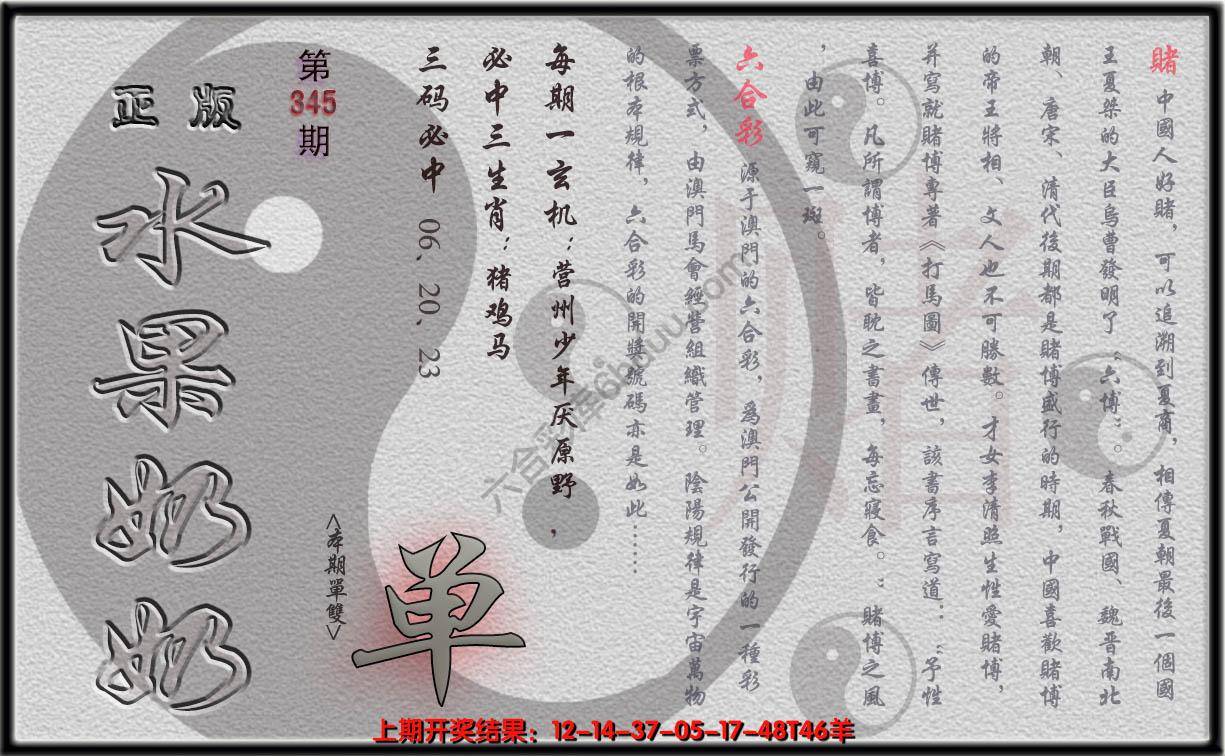 賭 中國人好賭，可以追溯到夏商，相傳夏朝最後一個國
王夏桀的大臣烏曹發明了“六博”。春秋戰國、魏晋南北
朝、唐宋、清代後期都是賭博盛行的時期，中國喜歡賭博
的帝王將相、文人也不可勝數。才女李清照生性愛賭博，
并寫就賭博專著《打馬圖》傳世，該書序言寫道：“予性
喜博。凡所謂博者，皆耽之書畫，每忘寢食。”賭博之風
，由此可窺一斑。
六合彩 源于澳門的六合彩，爲澳門公開發行的一種彩
票方式，由澳門馬會經營組織管理。陰陽規律是宇宙萬物
的根本規律，六合彩的開獎號碼亦是如此……
每期一玄机：营州少年厌原野，
必中三生肖：猪鸡马
三码必中 06、20、23
第
345
期
正版
水果奶奶
<本期單雙>
单
賭
六合彩库6buuu.com
上期开奖结果：12-14-37-05-17-48T46羊